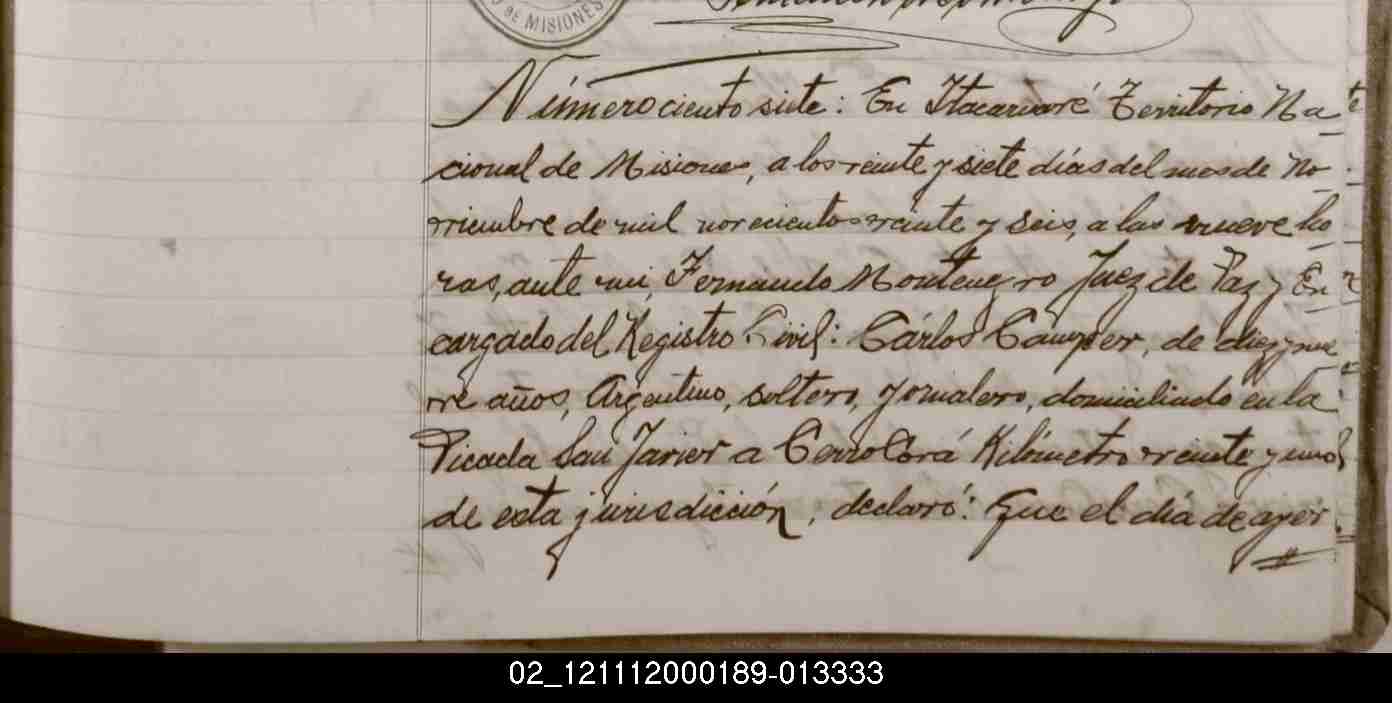 DE MISIONES
Número ciento siete: En Itacaruaré Territorio Na
cional de Misiones, a los veinte y siete días del mes de No
viembre de mil novecientos veinte y seis, a las nueve ho
ras, ante mi, Fernando Montenegro Juez de Paz y En
cargado del Registro Civil: Cárlos Camper, de diez y nue
ve años, Argentino, soltero, jornalero, domiciliado en la
Picada San Javier a Cerro Corá Kilómetro veinte y uno
de esta jurisdicción, declaró: Que el día de ayer
02_121112000189-013333